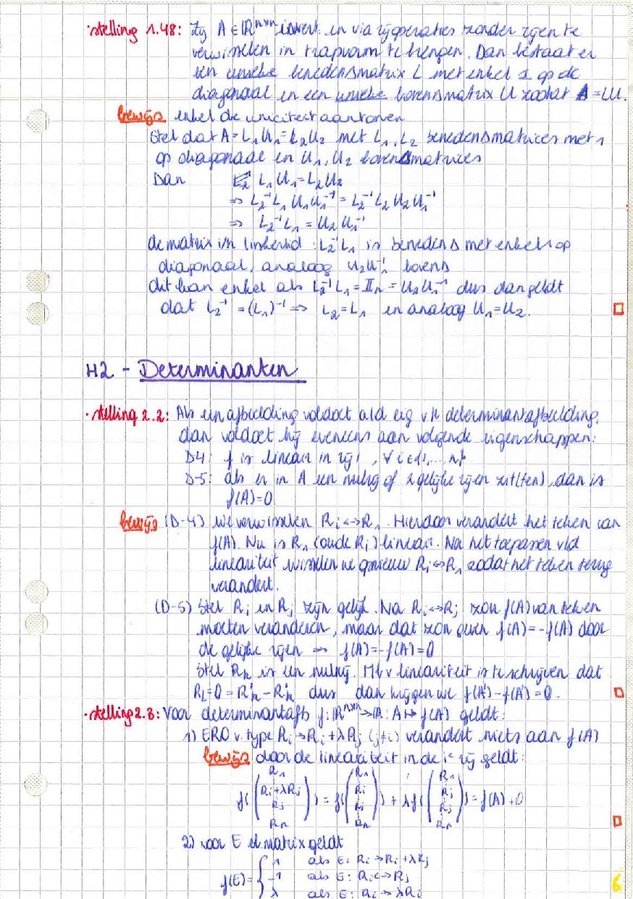 • stelling 1.48: Zij A ∈ ℝⁿˣⁿ invert. en via rijoperaties zonder rijen te
verwisselen in trapvorm te brengen. Dan bestaat er
een unieke benedenΔmatrix L met enkel 1 op de
diagonaal en een unieke bovenΔmatrix U zodat A = LU.
bewijs enkel de uniciteit aantonen
Stel dat A = L₁U₁ = L₂U₂ met L₁, L₂ benedenΔmatrices met 1
op diagonaal en U₁, U₂ bovenΔmatrices
Dan L₁U₁ = L₂U₂
⇒ L₂⁻¹L₁U₁U₁⁻¹ = L₂⁻¹L₂U₂U₁⁻¹
⇒ L₂⁻¹L₁ = U₂U₁⁻¹
de matrix in linkerlid: L₂⁻¹L₁ is benedenΔ met enkel 1 op
diagonaal, analoog U₂U₁⁻¹ bovenΔ
dit kan enkel als L₂⁻¹L₁ = 𝕀ₙ = U₂U₁⁻¹ dus dan geldt
dat L₂⁻¹ = (L₁)⁻¹ ⇒ L₂ = L₁ en analoog U₁ = U₂.
H2 - Determinanten
• stelling 2.2: Als een afbeelding voldoet a/d eig v/e determinantafbeelding,
dan voldoet hij eveneens aan volgende eigenschappen:
D-4: f is lineair in rij i, ∀ i ∈ {1,...,n}
D-5: als er in A een nulrij of 2 gelijke rijen zit(ten), dan is
f(A)=0.
bewijs (D-4) we verwisselen Rᵢ ↔ R₁. Hierdoor verandert het teken van
f(A). Nu is R₁ (oude Rᵢ) lineair. Na het toepassen v/d
lineariteit wisselen we opnieuw Rᵢ ↔ R₁ zodat het teken terug
verandert.
(D-5) Stel Rᵢ en Rⱼ zijn gelijk. Na Rᵢ ↔ Rⱼ zou f(A) van teken
moeten veranderen, maar dat zou geven f(A) = -f(A) door
de gelijke rijen ⇒ f(A) = -f(A) = 0
Stel Rₖ is een nulrij. M.b.v lineariteit is te schrijven dat
Rₖ = 0 = R'ₖ - R'ₖ dus dan krijgen we f(A') - f(A') = 0.
• stelling 2.3: Voor determinantafb f: ℝⁿˣⁿ → ℝ: A ↦ f(A) geldt:
1) ERO v. type Rᵢ → Rᵢ + λRⱼ (j≠i) verandert niets aan f(A)
bewijs door de lineariteit in de iᵉ rij geldt:
R₁ R₁ R₁
f( Rᵢ+λRⱼ ) = f( Rᵢ ) + λf( Rⱼ ) = f(A) + 0
Rⱼ Rⱼ Rⱼ
Rₙ Rₙ Rₙ
2) voor E el. matrix geldt
1 als E: Rᵢ → Rᵢ + λRⱼ
f(E) = { -1 als E: Rᵢ ↔ Rⱼ
λ als E: Rᵢ → λRᵢ
6